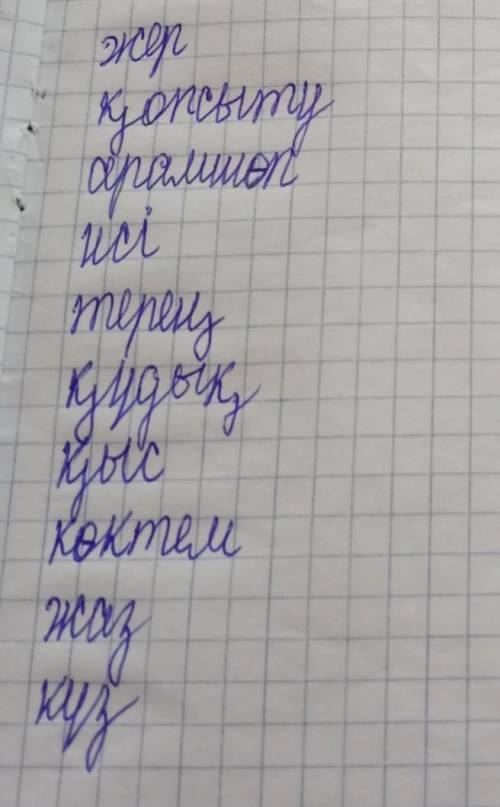 жер
қопсыту
арамшөп
иісі
терең
құдық
қыс
көктем
жаз
күз